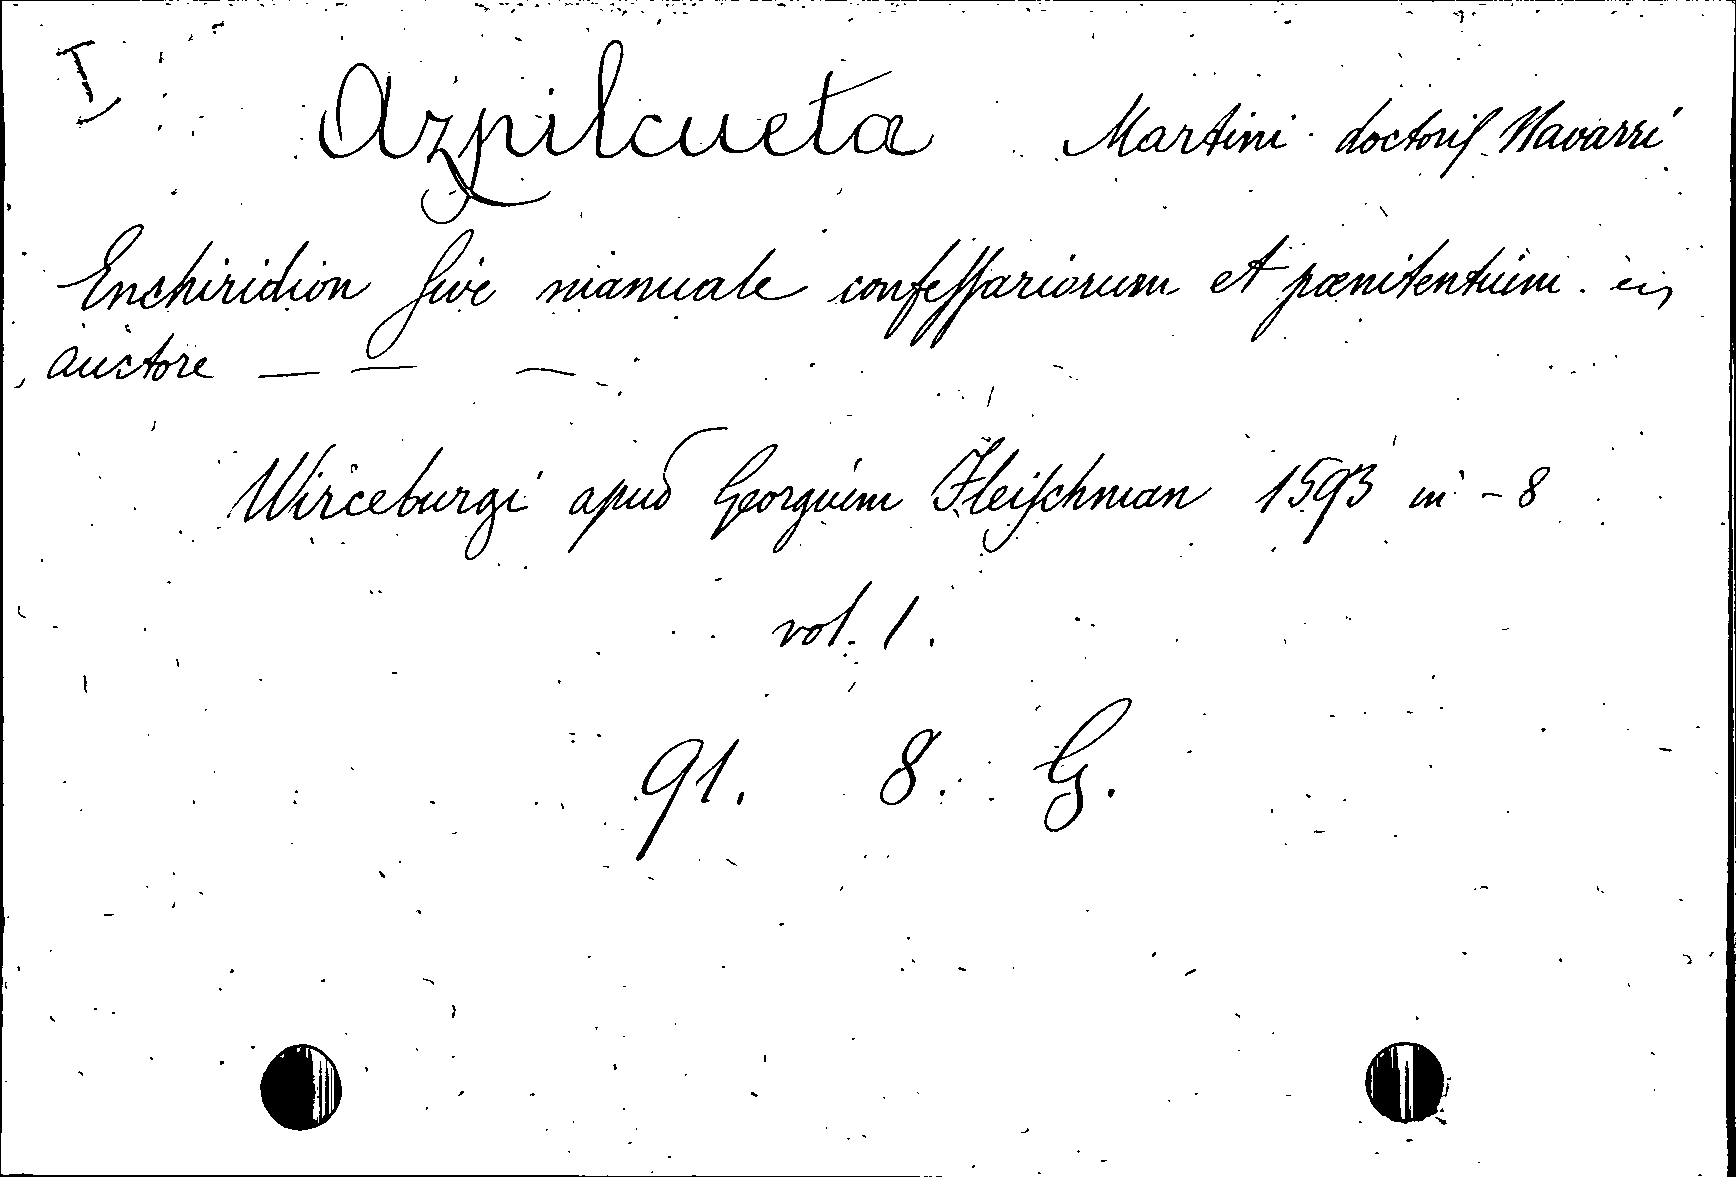 I
Azpilcueta Martini doctoris Navarri
Enchiridion sive manuale confessariorum et pœnitentium.
auctore — — —
Wirceburgi apud Georguim Fleischman 1593 in - 8
vol. 1.
91. 8. G.